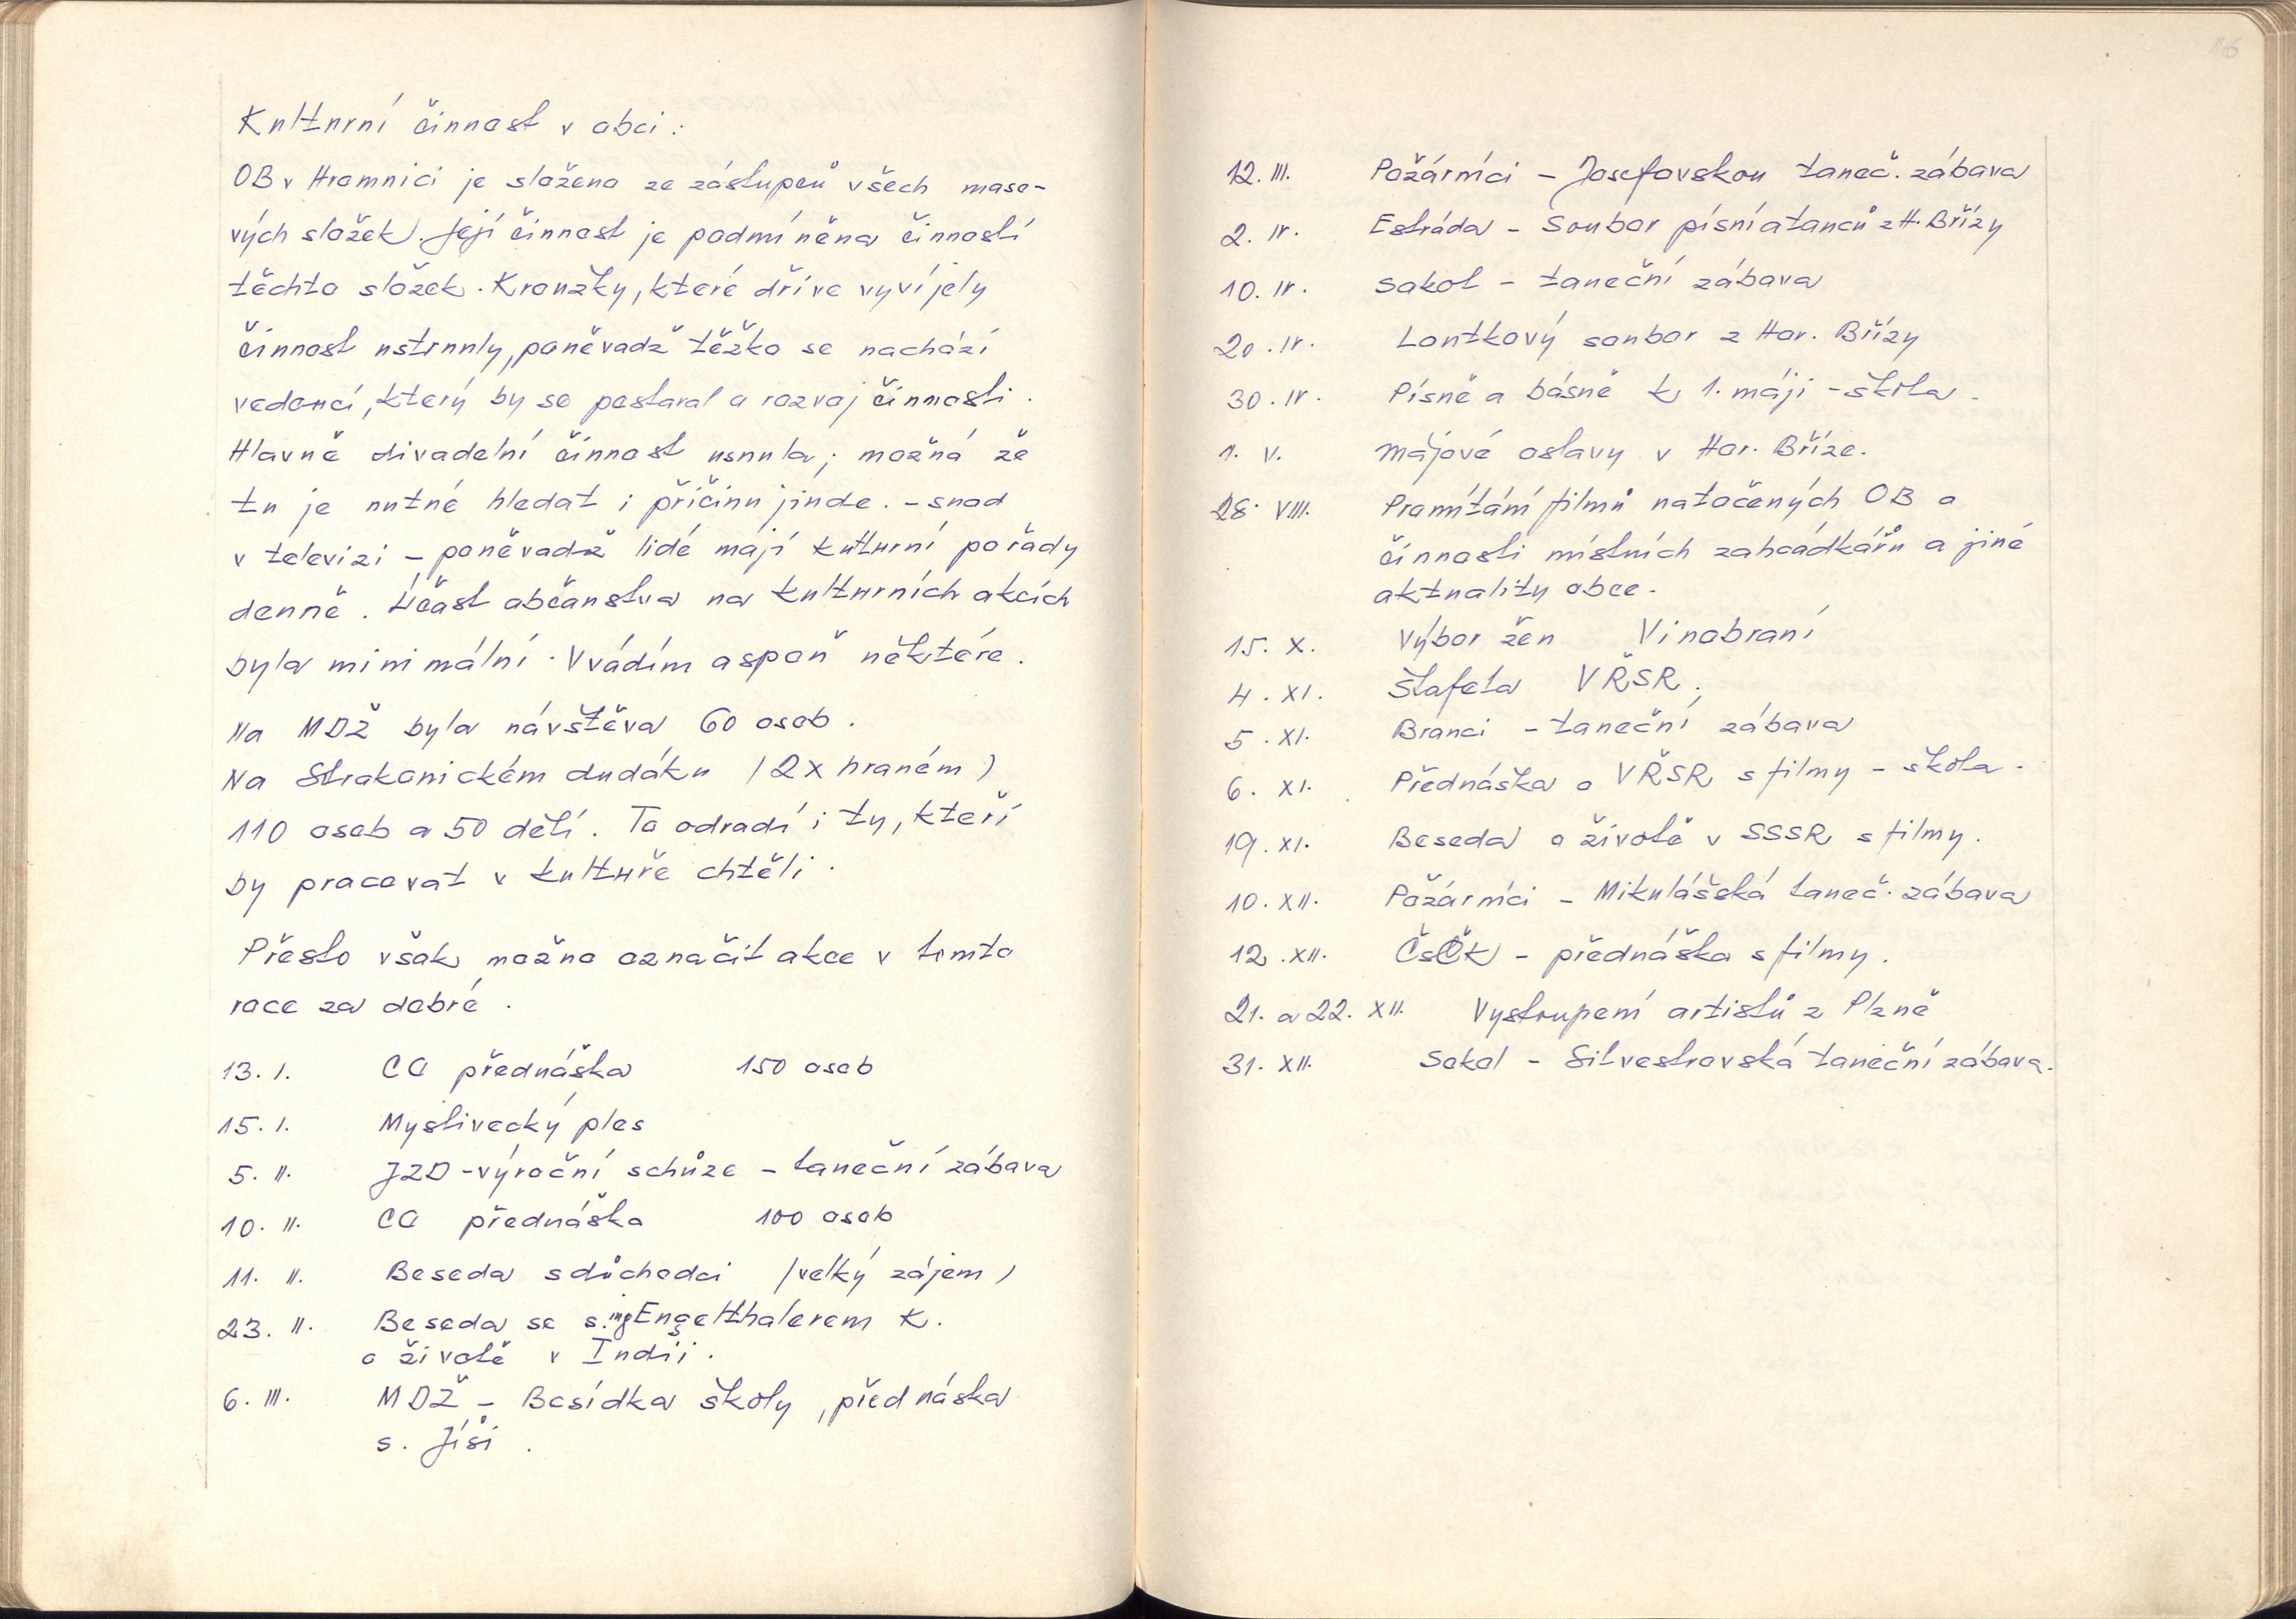 Kulturní činnost v obci:
OB v Hromnici je složena ze zástupců všech maso-
vých složek. Její činnost je podmíněna činností
těchto složek. Kroužky, které dříve vyvíjely
činnost ustrnuly, poněvadž těžko se nachází
vedoucí, který by se postaral o rozvoj činnosti.
Hlavně divadelní činnost usnula; možná že
tu je nutné hledat i příčinu jinde. - snad
v televizi - poněvadž lidé mají kulturní pořady
denně. Účast občanstva na kulturních akcích
byla minimální. Uvádím aspoň některé.
Na MDŽ byla návštěva 60 osob.
Na Strakonickém dudáku /2x hraném/
110 osob a 50 dětí. To odradí i ty, kteří
by pracovat v kultuře chtěli.
Přesto však možno označit akce v tomto
roce za dobré.
13. I. CO přednáška 150 osob
15. I. Myslivecký ples
5. II. JZD - výroční schůze - taneční zábava
10. II. CO přednáška 100 osob
11. II. Beseda s důchodci /velký zájem/
23. II. Beseda se s. ing Engelthalerem K.
o životě v Indii.
6. III. MDŽ - Besídka školy, přednáska
s. Jíši.
12. III. Požárníci - Josefovskou taneč. zábava
2. IV. Estráda - Soubor písní a tanců z H. Břízy
10. IV. Sokol - taneční zábava
20. IV. Loutkový soubor z Hor. Břízy
30. IV. Písně a básně k 1. máji - škola.
1. V. Májové oslavy v Hor. Bříze.
28. VIII. Promítání filmů natočených OB o
činnosti místních zahrádkářů a jiné
aktuality obce.
15. X. Výbor žen Vinobraní
4. XI. Štafeta VŘSR.
5. XI. Branci - taneční zábava
6. XI. Přednáška o VŘSR s filmy - škola.
19. XI. Beseda o životě v SSSR s filmy.
10. XII. Požárníci - Mikulášská taneč. zábava
12. XII. ČsČK - přednáška s filmy.
21. a 22. XII. Vystoupení artistů z Plzně
31. XII. Sokol - Silvestrovská taneční zábava.